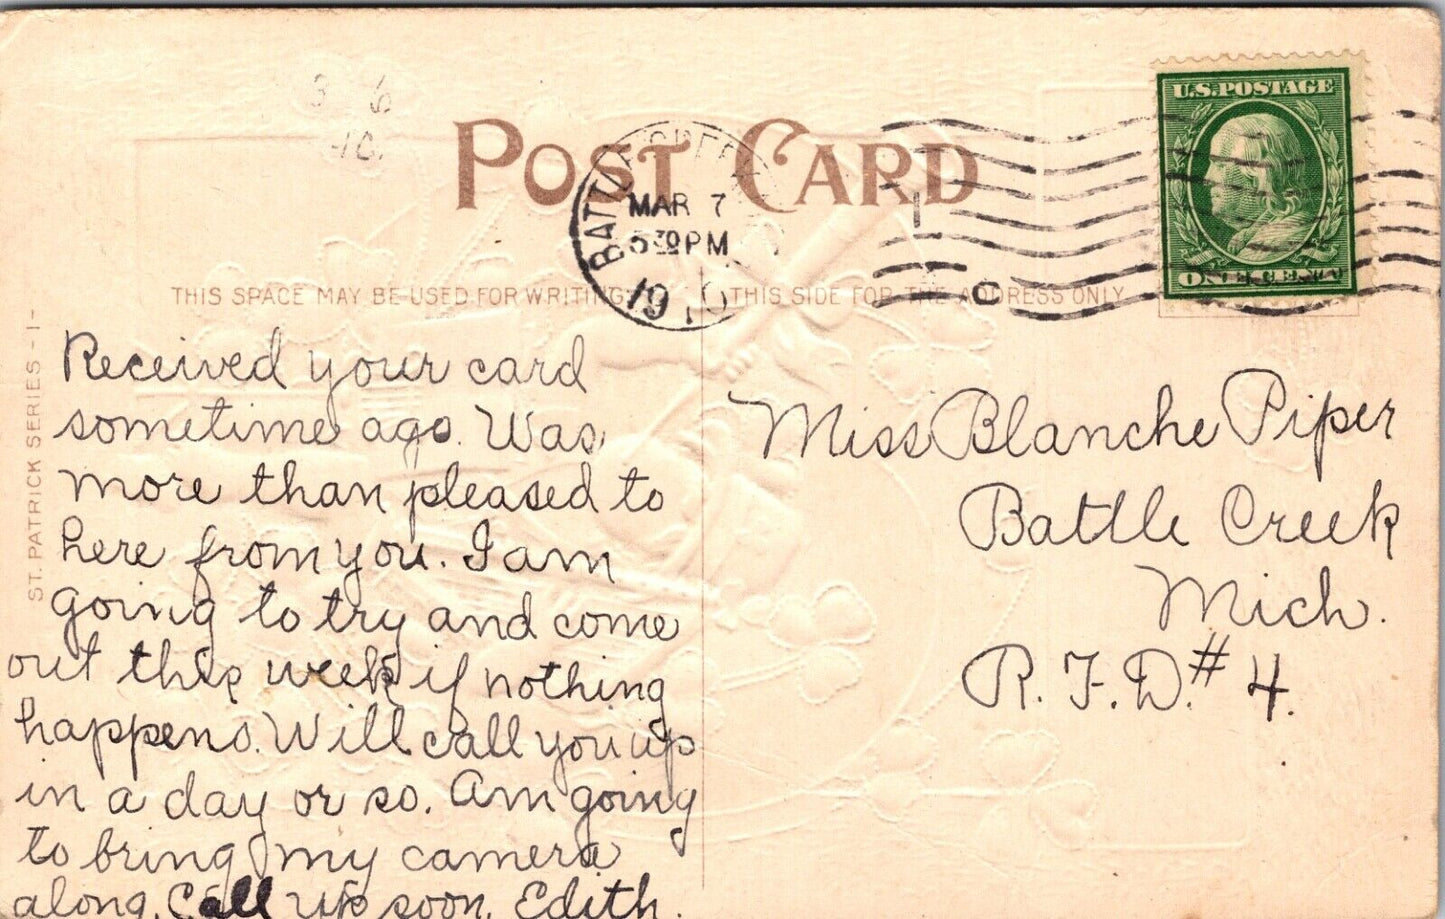 3 6
-10.
U.S. POSTAGE
ONE CENT
POST CARD
BATTLE CREEK
MAR 7
5 30 PM
1910
THIS SPACE MAY BE USED FOR WRITING
THIS SIDE FOR THE ADDRESS ONLY
ST. PATRICK SERIES -1-
Received your card
sometime ago. Was
more than pleased to
here from you. I am
going to try and come
out this week if nothing
happens. Will call you up
in a day or so. Am going
to bring my camera
along. Call up soon. Edith.
Miss Blanche Piper
Battle Creek
Mich.
R. F. D. # 4.